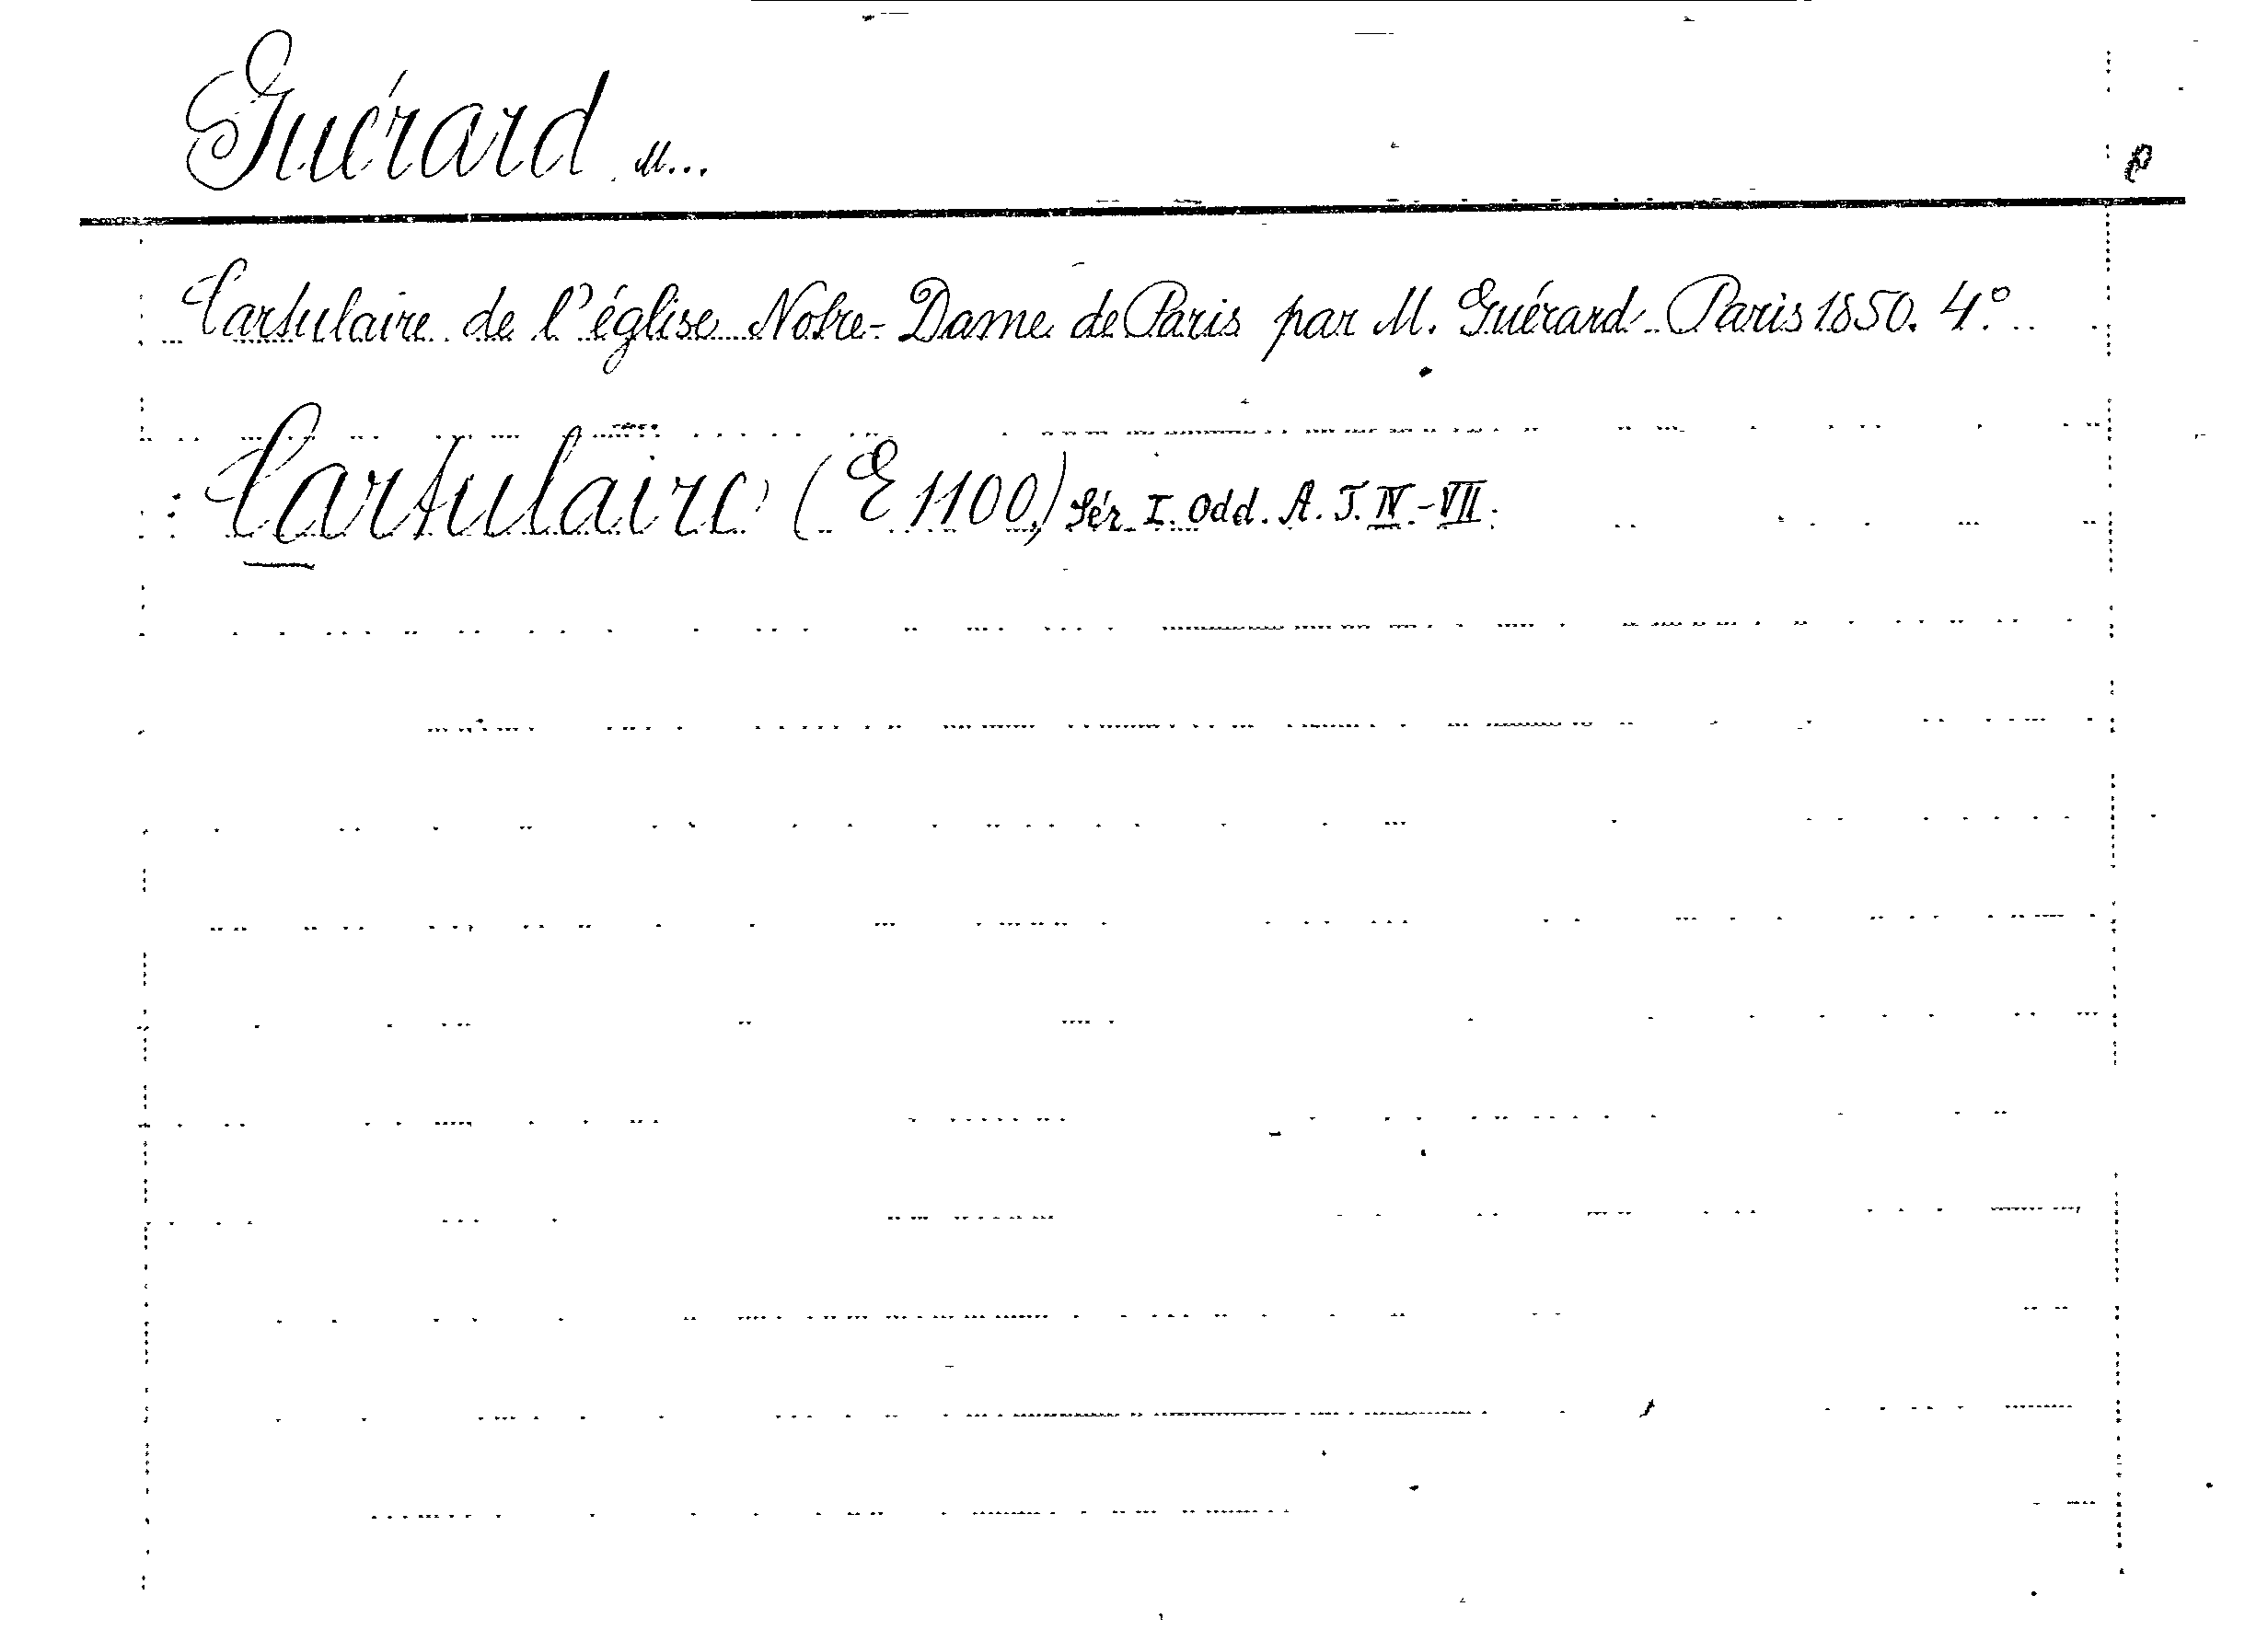 Guérard M...
Cartulaire de l'église Notre-Dame de Paris par M. Guérard. Paris 1850. 4°.
: Cartulaire (E 1100.) Sér. I. Odd. A. T. IV.-VII.